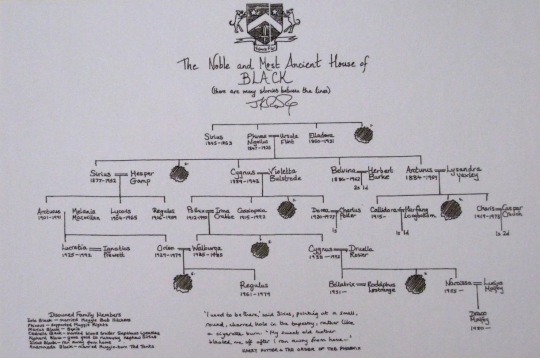 The Noble and Most Ancient House of
BLACK
(there are many stories between the lines)
Sirius
1845-1853
Phineas
Nigellus
1847-1925
Ursula
Flint
Elladora
1850-1931
Sirius
1877-1952
Hesper
Gamp
Cygnus
1889-1943
Violetta
Bulstrode
Belvina
1886-1962
Herbert
Burke
2s 1d
Arcturus
1884-1959
Lysandra
Yaxley
Arcturus
1901-1991
Melania
Macmillan
Lycoris
1904-1965
Regulus
1906-1959
Pollux
1912-1990
Irma
Crabbe
Cassiopeia
1915-1992
Dorea
1920-1977
Charlus
Potter
1s
Callidora
1915-
Harfang
Longbottom
1s 1d
Charis
1919-1973
Caspar
Crouch
1s 2d
Lucretia
1925-1992
Ignatius
Prewett
Orion
1929-1979
Walburga
1925-1985
Cygnus
1938-1992
Druella
Rosier
Regulus
1961-1979
Bellatrix
1951-
Rodolphus
Lestrange
Narcissa
1955-
Lucius
Malfoy
Draco
Malfoy
1980-
Disowned Family Members
Isla Black - married Muggle Bob Hitchens
Phineas - supported Muggle Rights
Marius Black - Squib
Cedrella Black - married blood traitor Septimus Weasley
Alphard Black - gave gold to runaway nephew Sirius
Sirius Black - ran away from home
Andromeda Black - married Muggle-born Ted Tonks
'I used to be there,' said Sirius, pointing at a small,
round, charred hole in the tapestry, rather like
a cigarette burn. 'My sweet old mother
blasted me off after I ran away from home -'
HARRY POTTER & THE ORDER OF THE PHOENIX